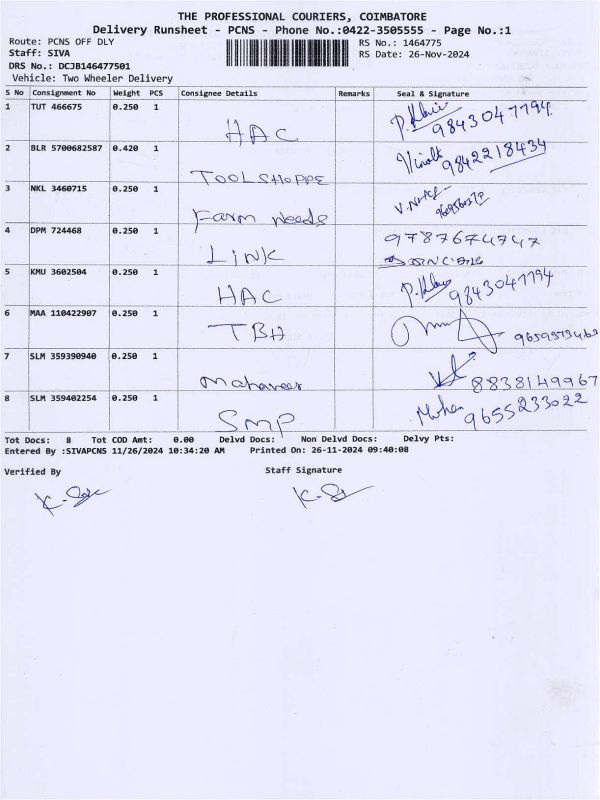 THE PROFESSIONAL COURIERS, COIMBATORE
Delivery Runsheet - PCNS - Phone No.:0422-3505555 - Page No.:1
Route: PCNS OFF DLY RS No.: 1464775
Staff: SIVA RS Date: 26-Nov-2024
DRS No.: DCJB146477501
Vehicle: Two Wheeler Delivery
S No Consignment No Weight PCS Consignee Details Remarks Seal & Signature
1 TUT 466675 0.250 1 HAC 9843047794
2 BLR 5700682587 0.420 1 TOOLSHOPPE 9842218434
3 NKL 3460715 0.250 1 Farm needs
4 DPM 724468 0.250 1 LINK 9787674747
5 KMU 3602504 0.250 1 HAC 9843047794
6 MAA 110422907 0.250 1 TBH
7 SLM 359390940 0.250 1 Mahaveer 8838149967
8 SLM 359402254 0.250 1 SMP Mohan 9655233022
Tot Docs: 8 Tot COD Amt: 0.00 Delvd Docs: Non Delvd Docs: Delvy Pts:
Entered By :SIVAPCNS 11/26/2024 10:34:20 AM Printed On: 26-11-2024 09:40:08
Verified By Staff Signature